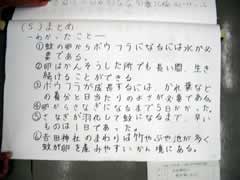 (5)まとめ
ーわかったことー
①蚊の卵からボウフラになるには水が必
要である。
②卵はかんそうした所でも長い間、生き
続けることができる
③ボウフラが成長するには、かれ葉など
の養分と日当たりのよさが必要である。
④卵からさなぎになるまで5日かかった。
⑤さなぎが羽化して蚊になるまで、早い
ものは1日であった。
⑥吉田神社のまわりは竹やぶや池が多く
蚊が卵を産みやすいかん境にある。